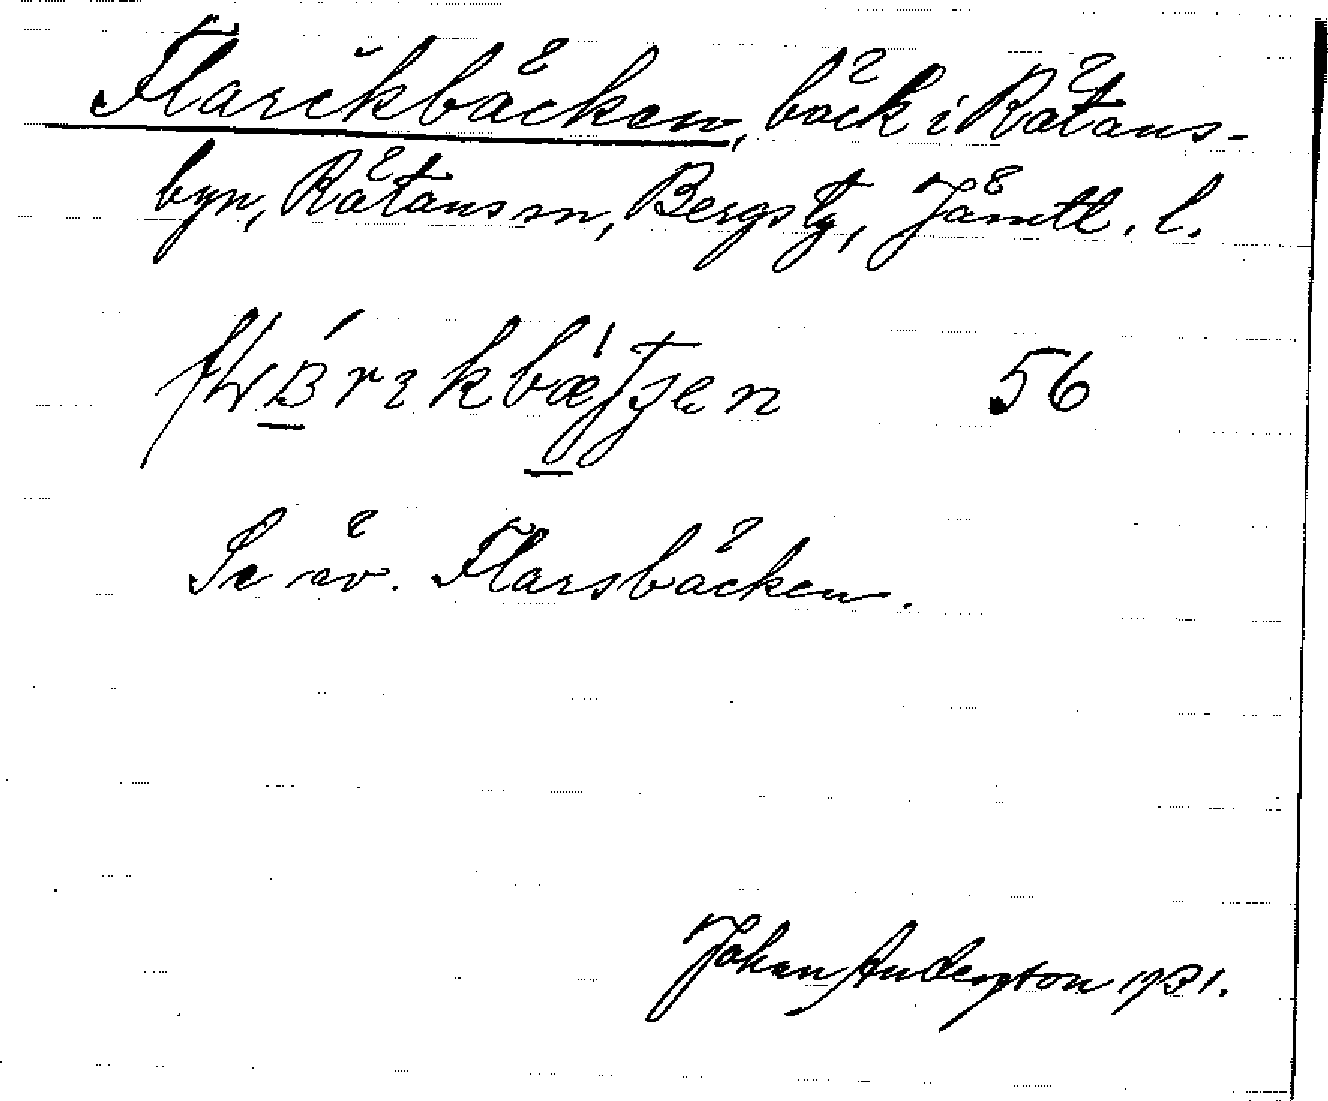 Flarckbäcken, bäck i Rätans-
byn, Rätans sn, Bergs tg, Jämtl. l.
56
Se äv. Flarsbäcken.
Johan Anderzton 1931.